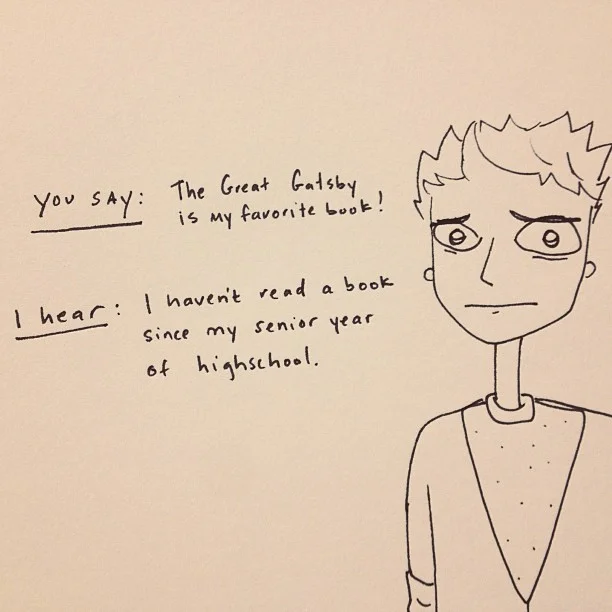 YOU SAY: The Great Gatsby
is my favorite book!
I hear: I haven't read a book
since my senior year
of highschool.